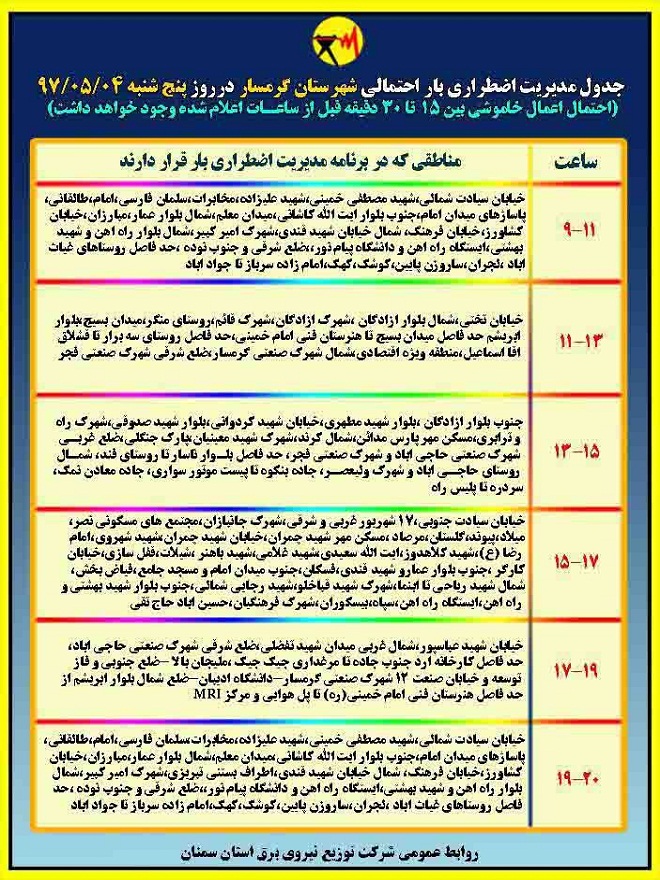 جدول مدیریت اضطراری بار احتمالی شهرستان گرمسار درروز پنج شنبه ۹۷/۰۵/۰۴
(احتمال اعمال خاموشی بین ۱۵ تا ۳۰ دقیقه قبل از ساعات اعلام شده وجود خواهد داشت)
ساعت
مناطقی که در برنامه مدیریت اضطراری بار قرار دارند
۹-۱۱
خیابان سیادت شمالی،شهید مصطفی خمینی،شهید علیزاده،مخابرات،سلمان فارسی،امام،طالقانی،
پاساژهای میدان امام،جنوب بلوار ایت الله کاشانی،میدان معلم،شمال بلوار عمار،مبارزان،خیابان
کشاورز،خیابان فرهنگ، شمال خیابان شهید قندی،شهرک امیر کبیر،شمال بلوار راه اهن و شهید
بهشتی،ایستگاه راه اهن و دانشگاه پیام نور،،ضلع شرقی و جنوب نوده ،حد فاصل روستاهای غیاث
اباد ،لجران،ساروزن پایین،کوشک،کهک،امام زاده سرباز تا جواد اباد
۱۱-۱۳
خیابان تختی،شمال بلوار ازادگان ،شهرک ازادگان،شهرک قائم،روستای منگر،میدان بسیج،بلوار
ابریشم حد فاصل میدان بسیج تا هنرستان فنی امام خمینی،حد فاصل روستای سه برار تا قشلاق
اقا اسماعیل،منطقه ویژه اقتصادی،شمال شهرک صنعتی گرمسار،ضلع شرقی شهرک صنعتی فجر
۱۳-۱۵
جنوب بلوار ازادگان ،بلوار شهید مطهری،خیابان شهید کردوانی،بلوار شهید صدوقی،شهرک راه
و ترابری،مسکن مهر پارس مدائن،شمال کرند،شهرک شهید معینیان،پارک جنگلی،ضلع غربی
شهرک صنعتی حاجی اباد و شهرک صنعتی فجر، حد فاصل بلوار ناسار تا روستای فند، شمال
روستای حاجی اباد و شهرک ولیعصر، جاده بنکوه تا پیست موتور سواری، جاده معادن نمک،
سردره تا پلیس راه
۱۵-۱۷
خیابان سیادت جنوبی،۱۷ شهریور غربی و شرقی،شهرک جانبازان،مجتمع های مسکونی نصر،
میلاد،پیوند،گلستان،مرصاد ،مسکن مهر شهید چمران،خیابان شهید چمران،شهید شهروی،امام
رضا (ع)،شهید کلاهدوز،ایت الله سعیدی،شهید غلامی،شهید باهنر ،شیلات،قفل سازی،خیابان
کارگر ،جنوب بلوار عمارو شهید قندی،فسکان،جنوب میدان امام و مسجد جامع،فیاض بخش،
شمال شهید ریاحی تا ابنما،شهرک شهید قباخلو،شهید رجایی شمالی،جنوب بلوار شهید بهشتی و
راه اهن،ایستگاه راه اهن،سپاه،بیسکوران،شهرک فرهنگیان،حسین اباد حاج تقی
۱۷-۱۹
خیابان شهید عباسپور،شمال غربی میدان شهید تفضلی،ضلع شرقی شهرک صنعتی حاجی اباد،
حد فاصل کارخانه ارد جنوب جاده تا مرغداری جیک جیک ،ملیجان بالا -ضلع جنوبی و فاز
توسعه و خیابان صنعت ۱۲ شهرک صنعتی گرمسار-دانشگاه ادیبان-ضلع شمال بلوار ابریشم از
حد فاصل هنرستان فنی امام خمینی(ره) تا پل هوایی و مرکز MRI
۱۹-۲۰
خیابان سیادت شمالی،شهید مصطفی خمینی،شهید علیزاده،مخابرات،سلمان فارسی،امام،طالقانی،
پاساژهای میدان امام،جنوب بلوار ایت الله کاشانی،میدان معلم،شمال بلوار عمار،مبارزان،خیابان
کشاورز،خیابان فرهنگ، شمال خیابان شهید قندی،اطراف بستنی تبریزی،شهرک امیر کبیر،شمال
بلوار راه اهن و شهید بهشتی،ایستگاه راه اهن و دانشگاه پیام نور،،ضلع شرقی و جنوب نوده ،حد
فاصل روستاهای غیاث اباد ،لجران،ساروزن پایین،کوشک،کهک،امام زاده سرباز تا جواد اباد
روابط عمومی شرکت توزیع نیروی برق استان سمنان